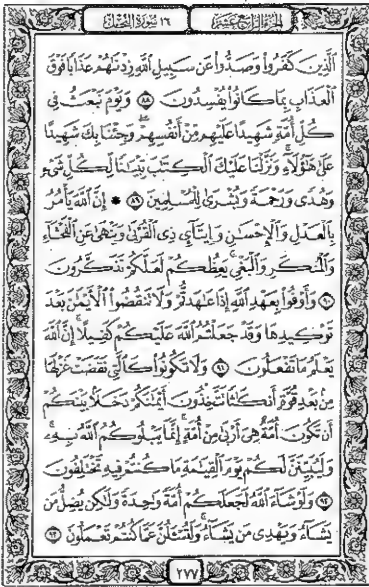 الجزء الرابع عشر ١٦ سورة النحل
ٱلَّذِينَ كَفَرُوا۟ وَصَدُّوا۟ عَن سَبِيلِ ٱللَّهِ زِدْنَٰهُمْ عَذَابًا فَوْقَ
ٱلْعَذَابِ بِمَا كَانُوا۟ يُفْسِدُونَ ٨٨ وَيَوْمَ نَبْعَثُ فِى
كُلِّ أُمَّةٍ شَهِيدًا عَلَيْهِم مِّنْ أَنفُسِهِمْ ۖ وَجِئْنَا بِكَ شَهِيدًا
عَلَىٰ هَٰٓؤُلَآءِ ۚ وَنَزَّلْنَا عَلَيْكَ ٱلْكِتَٰبَ تِبْيَٰنًا لِّكُلِّ شَىْءٍ
وَهُدًى وَرَحْمَةً وَبُشْرَىٰ لِلْمُسْلِمِينَ ٨٩ * إِنَّ ٱللَّهَ يَأْمُرُ
بِٱلْعَدْلِ وَٱلْإِحْسَٰنِ وَإِيتَآئِ ذِى ٱلْقُرْبَىٰ وَيَنْهَىٰ عَنِ ٱلْفَحْشَآءِ
وَٱلْمُنكَرِ وَٱلْبَغْىِ ۚ يَعِظُكُمْ لَعَلَّكُمْ تَذَكَّرُونَ
٩٠ وَأَوْفُوا۟ بِعَهْدِ ٱللَّهِ إِذَا عَٰهَدتُّمْ وَلَا تَنقُضُوا۟ ٱلْأَيْمَٰنَ بَعْدَ
تَوْكِيدِهَا وَقَدْ جَعَلْتُمُ ٱللَّهَ عَلَيْكُمْ كَفِيلًا ۚ إِنَّ ٱللَّهَ
يَعْلَمُ مَا تَفْعَلُونَ ٩١ وَلَا تَكُونُوا۟ كَٱلَّتِى نَقَضَتْ غَزْلَهَا
مِنۢ بَعْدِ قُوَّةٍ أَنكَٰثًا تَتَّخِذُونَ أَيْمَٰنَكُمْ دَخَلًۢا بَيْنَكُمْ
أَن تَكُونَ أُمَّةٌ هِىَ أَرْبَىٰ مِنْ أُمَّةٍ ۚ إِنَّمَا يَبْلُوكُمُ ٱللَّهُ بِهِۦ ۚ
وَلَيُبَيِّنَنَّ لَكُمْ يَوْمَ ٱلْقِيَٰمَةِ مَا كُنتُمْ فِيهِ تَخْتَلِفُونَ
٩٢ وَلَوْ شَآءَ ٱللَّهُ لَجَعَلَكُمْ أُمَّةً وَٰحِدَةً وَلَٰكِن يُضِلُّ مَن
يَشَآءُ وَيَهْدِى مَن يَشَآءُ ۚ وَلَتُسْـَٔلُنَّ عَمَّا كُنتُمْ تَعْمَلُونَ ٩٣
٢٧٧